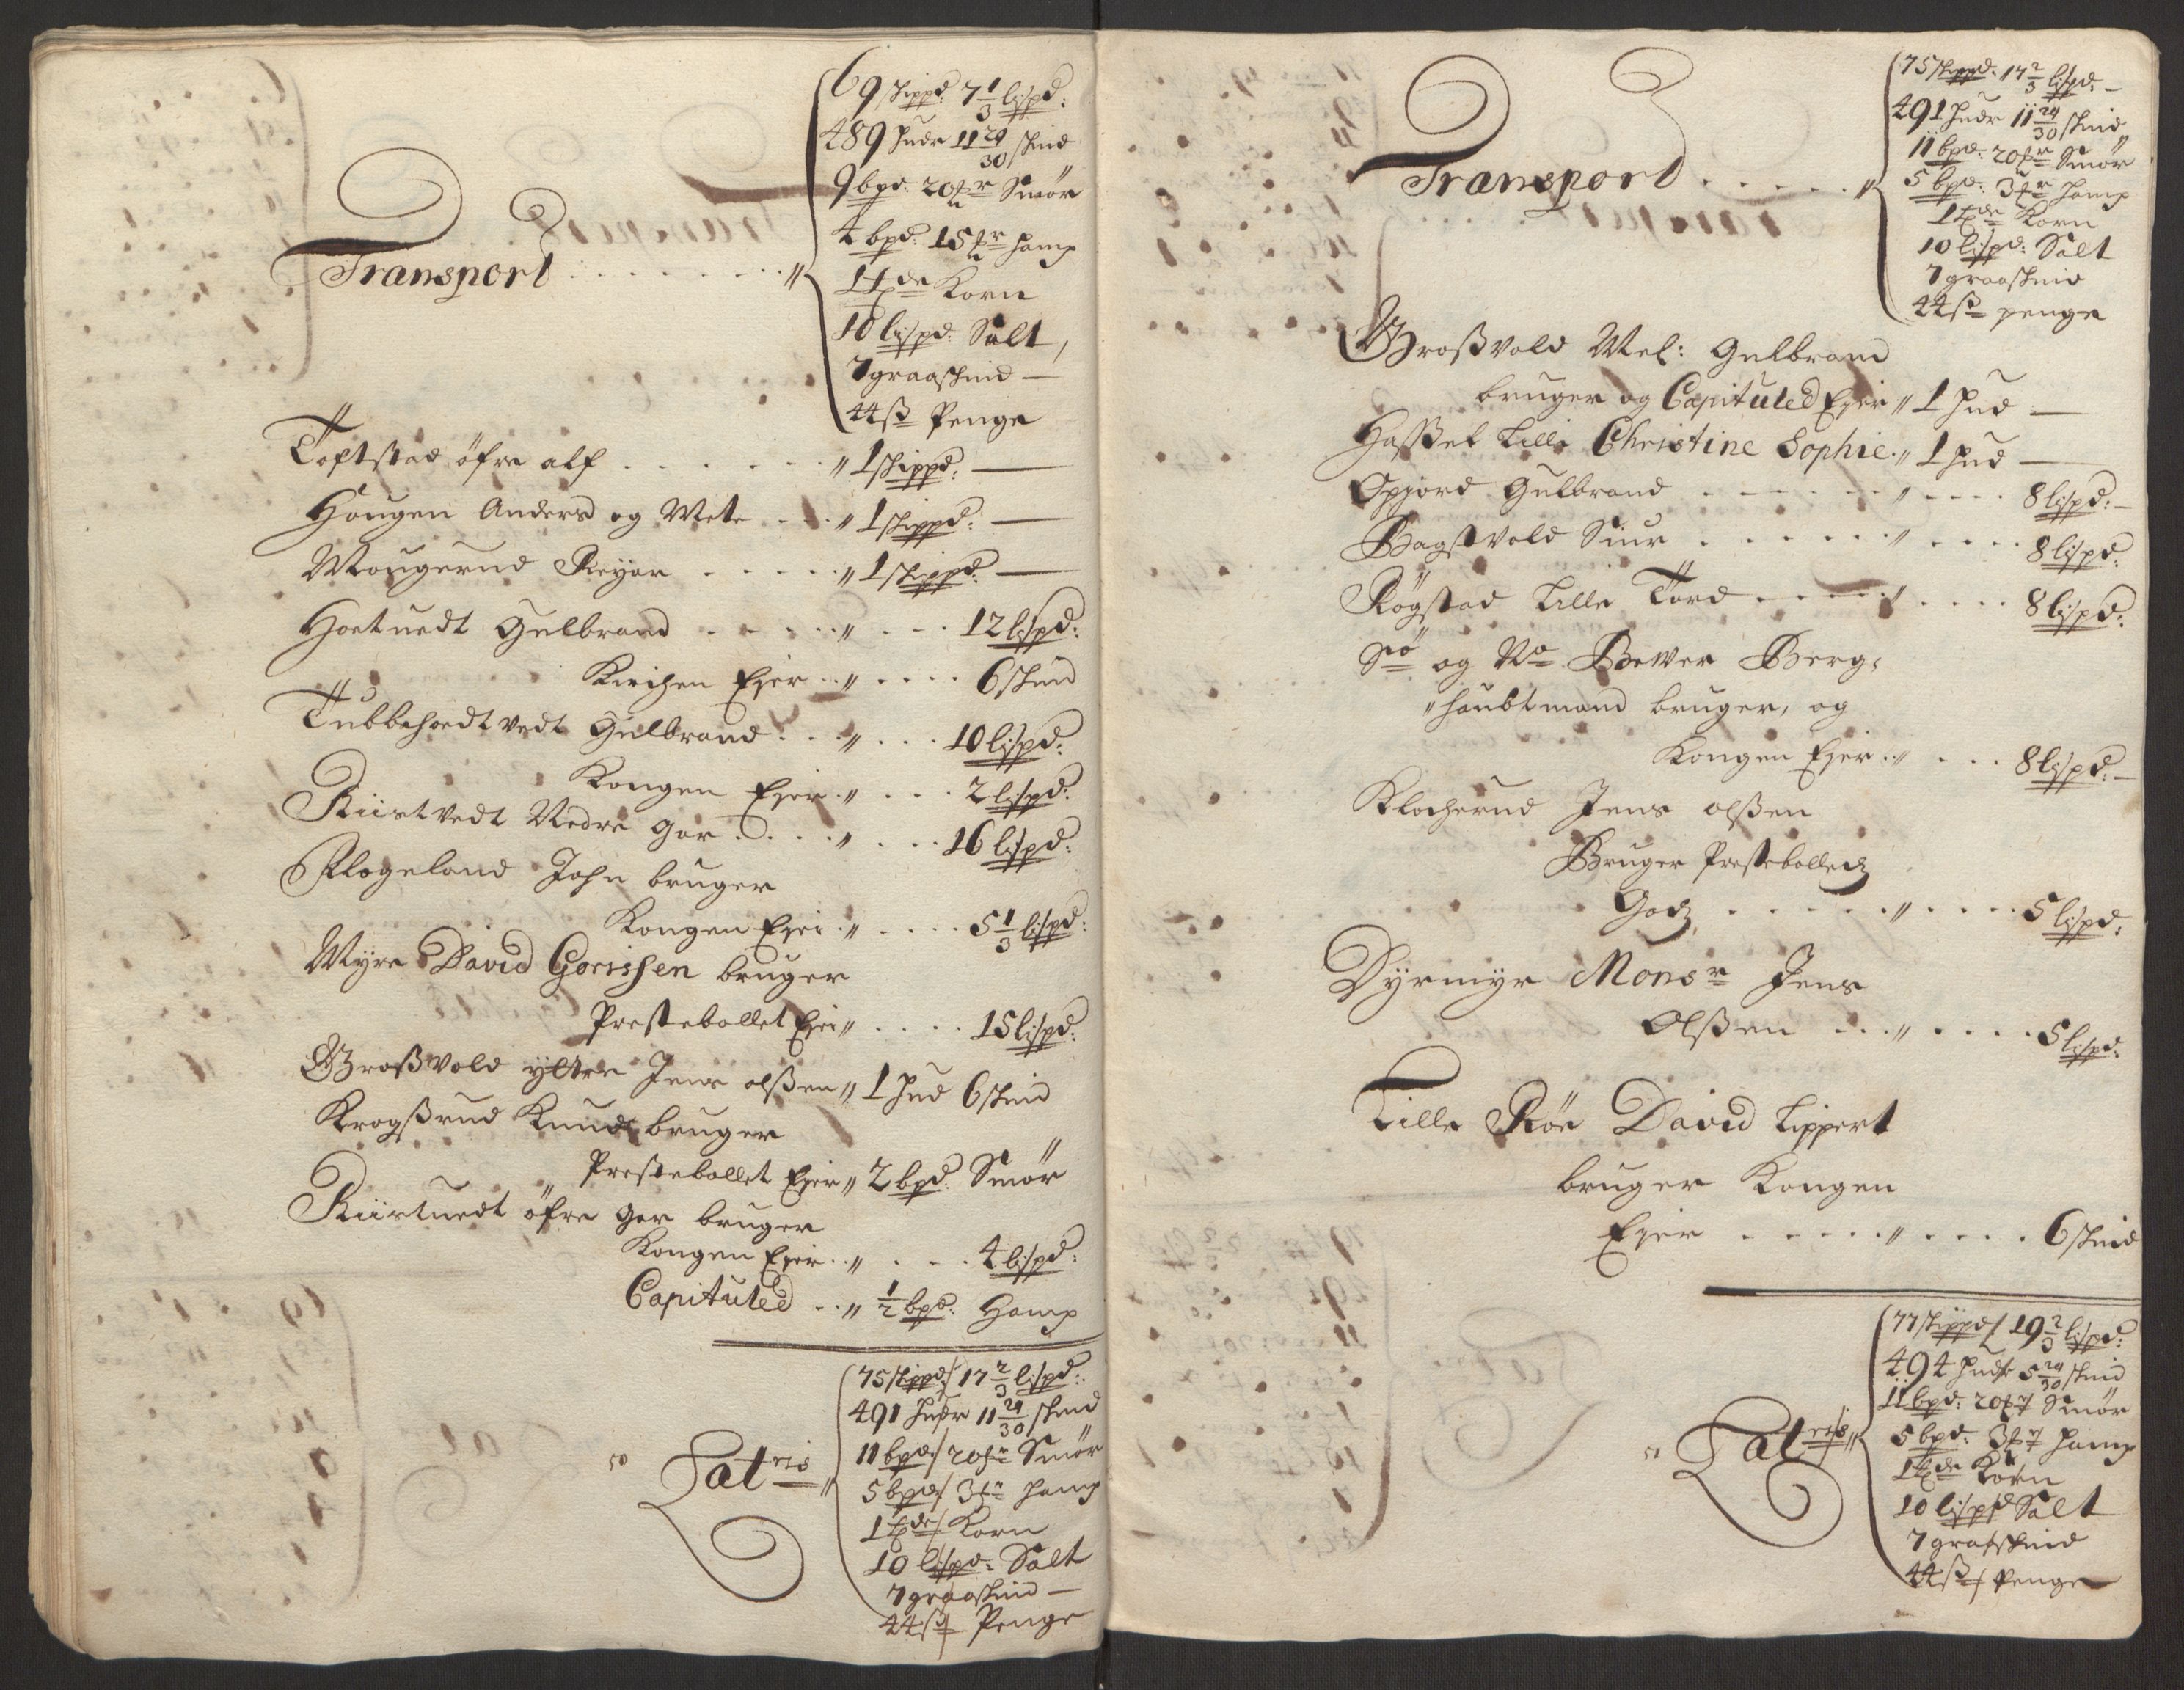 69 skippd: 7 1/3 lispd:
489 huder 11 24/30 skind
9 bpd: 20 mr Smör
4 bpd: 15 mr hamp
Transport
1 tde Korn
10 lispd: Salt,
7 graaskind —
44 ß Penge
Toftstad öfre alf . . . . . . . " 1 skippd: —
Haugen Anders og Mete . . . " 1 skippd: —
Mougerud Reyar . . . . . " 1 skippd: —
Hoetuedt Gulbrand . . . . . " . . . 12 lispd:
Kirchen Ejer . . " . . . . 6 skind
Tubbehoedtvedt Gulbrand . . . " . . . 10 lispd:
Kongen Ejer . " . . . 2 lispd:
Riistvedt Nedre Gar . . . . " . . . 16 lispd:
Flogeland John bruger
Kongen Ejer . " . . . . 5 1/3 lispd:
Myre David Gorissen bruger
Prestebollet Ejer " . . . . 15 lispd:
Großvold yttre Jens olßen " 1 hud 6 skind
Krogßrud Knud bruger
Prestebollet Ejer " 2 bpd: Smör
Riistuedt öfre Gar bruger
Kongen Ejer . . " . . . 4 lispd:
Capituled . . " 1/2 bpd: Hamp
75 skippd/ 17 2/3 lispd:
491 huder 11 24/30 skind
11 bpd/ 20 mr Smör
Lat ris "
5 bpd/ 3 mr hamp
1 tde/ Korn
10 lispd: Salt
7 graaskind —
44 ß Penge
75 skippd: 17 2/3 lispd: —
491 huder 11 24/30 skind
11 bpd: 20 mr Smör
Transport . . . . . "
5 bpd: 3 mr hamp
1 tde Korn
10 lispd: Salt
7 graaskind
44 ß penge
Großvold Mel: Gulbrand
bruger og Capituled Ejer " 1 hud —
Haßel Lille Christine Sophie . " 1 hud —
Opjord Gulbrand . . . . . " . . . . 8 lispd: —
Bagstvold Siur . . . . . . " . . . . 8 lispd:
Rögstad Lille Tord . . . . . " . . . . 8 lispd:
Sö og No Bewer Berg=
"haubtmand bruger, og
Kongen Ejer . . " . . . 8 lispd: —
Klocherud Jens olßen
Bruger Prestebolletz
Godz . . . . . . " . . . . 5 lispd:
Dyrmyr Monsr Jens
Olßen . . . " . . . . . 5 lispd:
Lille Röe David Lippert
bruger Kongen
Ejer . . . . . " . . . . 6 skind
77 skippd/ 19 2/3 lispd:
494 huder 5 24/30 skind
11 bpd: 20 mr Smör
Lat ris "
5 bpd: 3 mr hamp
1 tde Korn
10 lispd Salt
7 graaskind
44 ß/ Penge